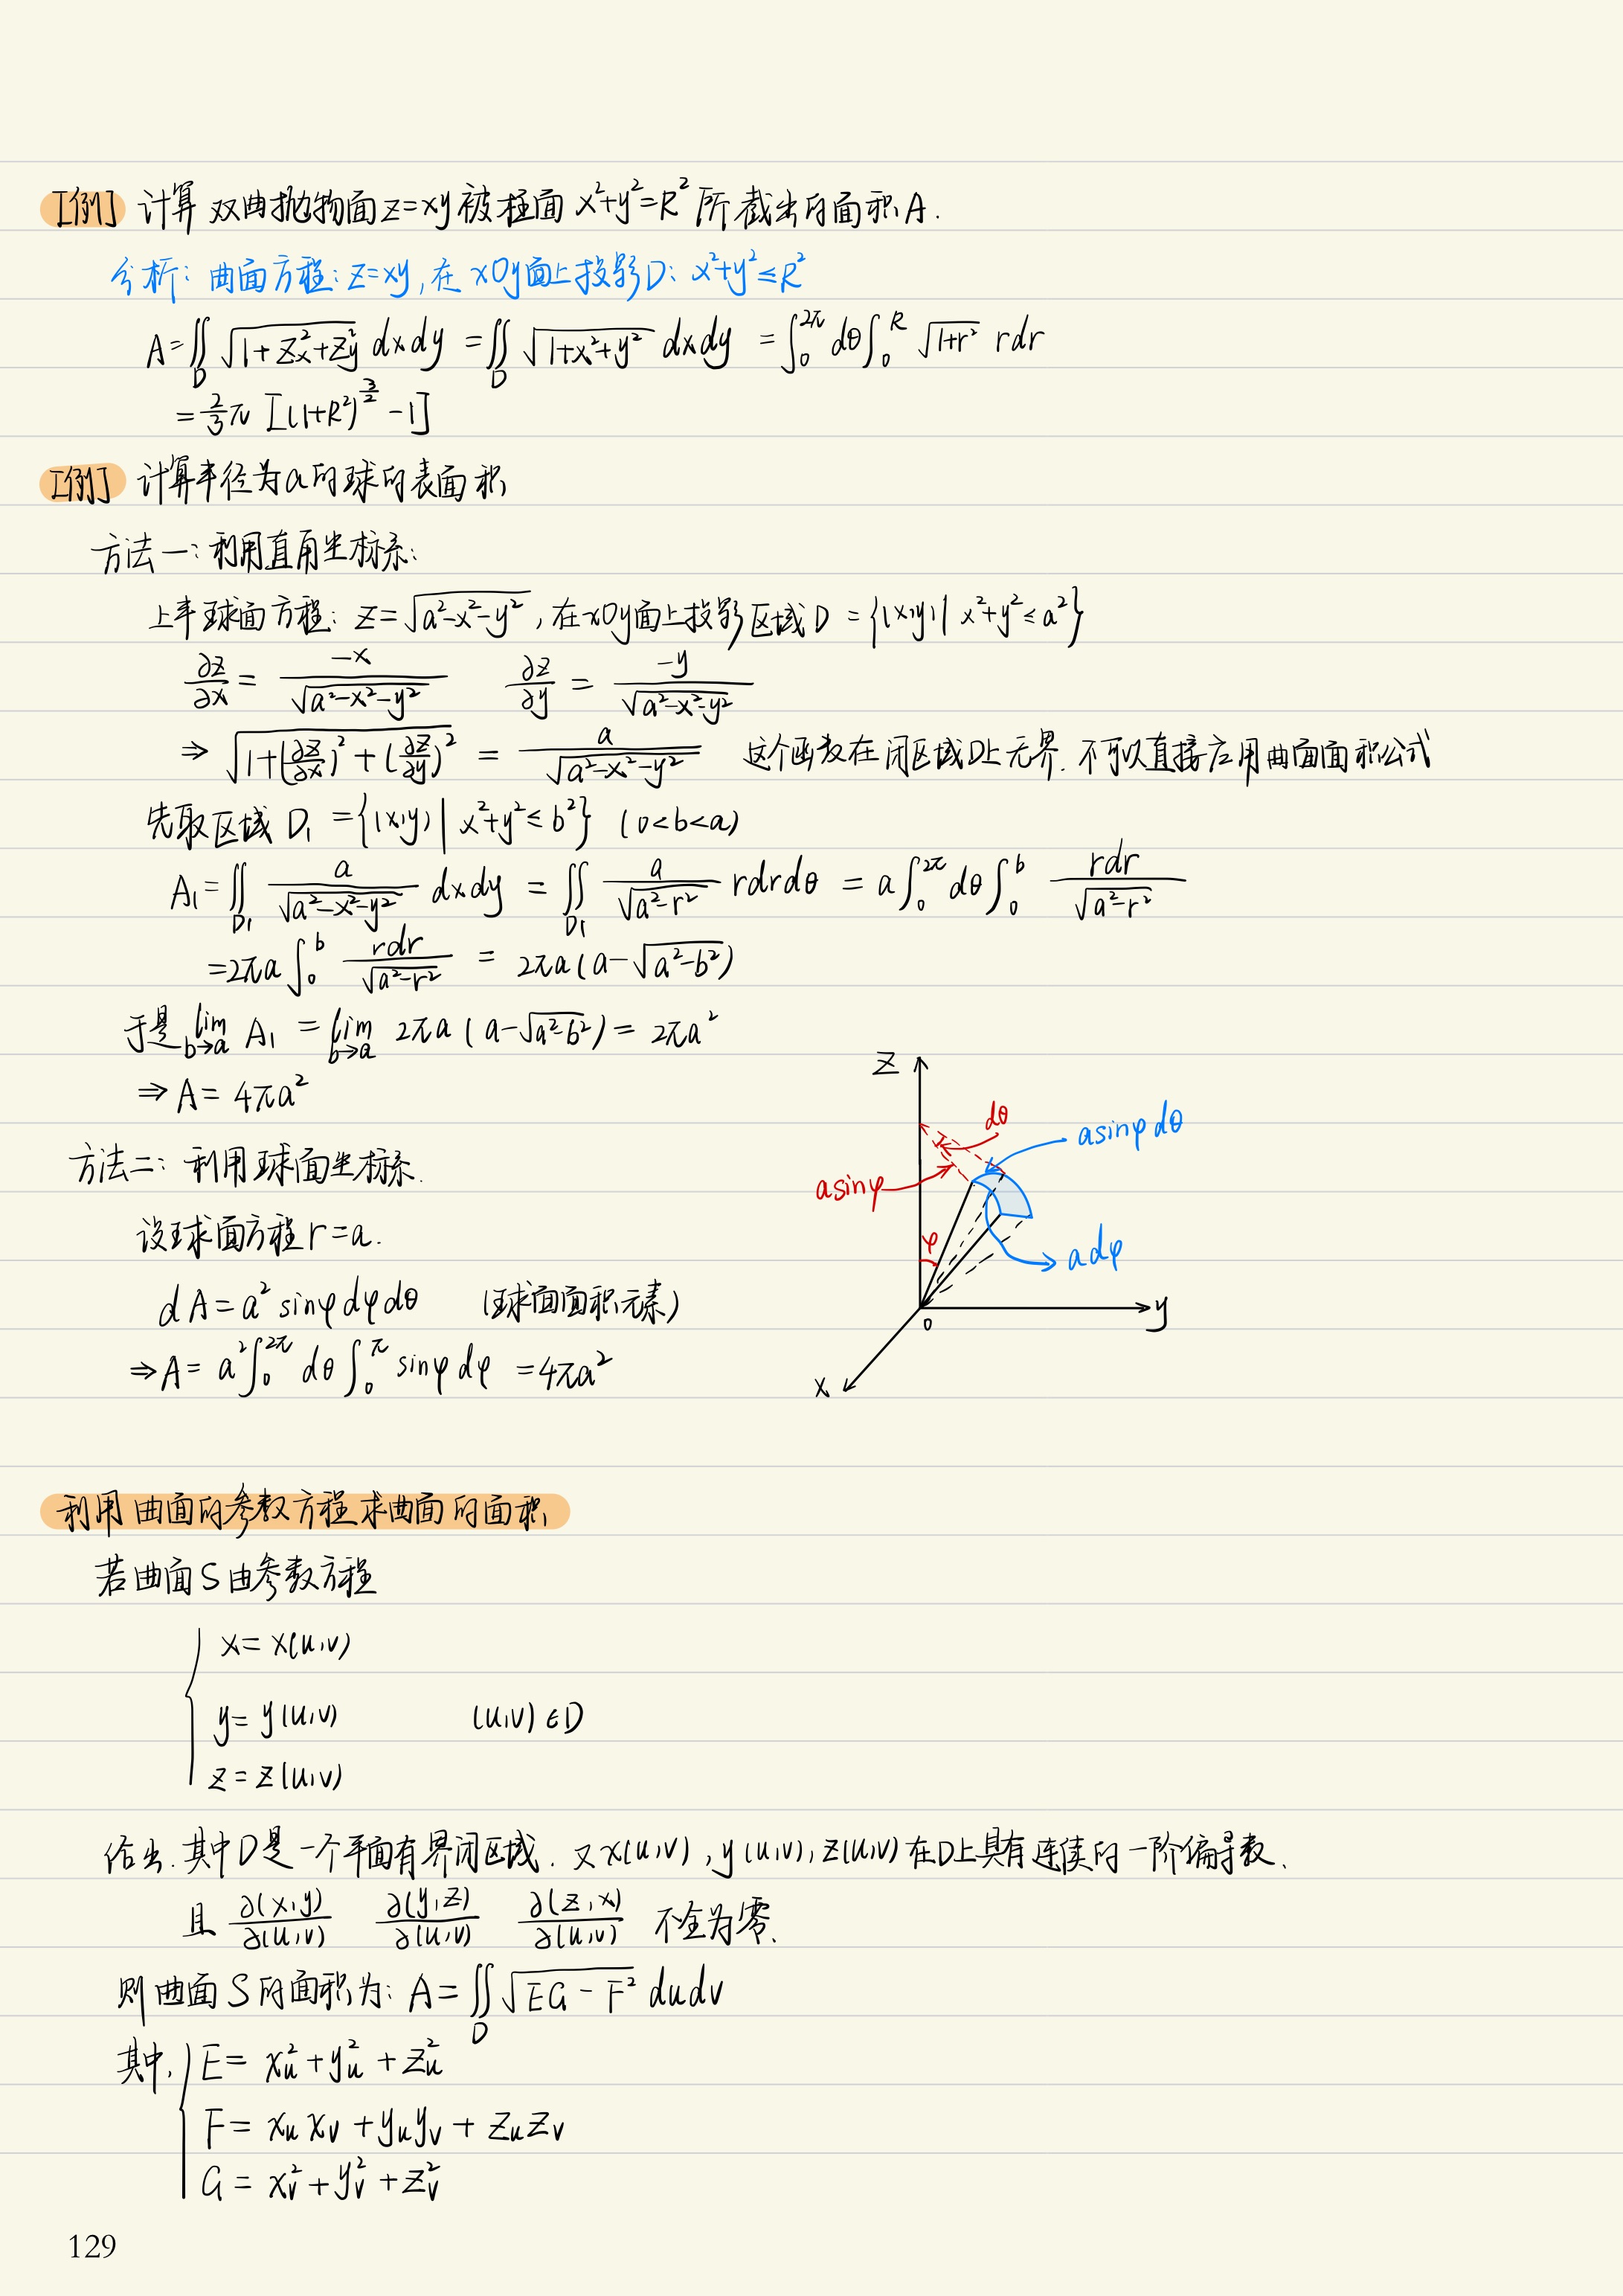 [例] 计算双曲抛物面z=xy被柱面 x²+y²=R² 所截出的面积A.
分析: 曲面方程: z=xy, 在xOy面上投影D: x²+y²≤R²
A=∬_D √(1+z_x²+z_y²) dxdy =∬_D √(1+x²+y²) dxdy =∫₀^{2π} dθ∫₀^R √(1+r²) rdr
=⅔π [(1+R²)^{3/2} -1]
[例] 计算半径为a的球的表面积
方法一: 利用直角坐标系:
上半球面方程: z=√(a²-x²-y²), 在xOy面上投影区域D ={(x,y)| x²+y²≤a²}
∂z/∂x = -x/√(a²-x²-y²) ∂z/∂y = -y/√(a²-x²-y²)
⇒ √(1+(∂z/∂x)²+(∂z/∂y)²) = a/√(a²-x²-y²) 这个函数在闭区域D上无界. 不可以直接应用曲面面积公式
先取区域 D₁ ={(x,y)| x²+y²≤b²} (0<b<a)
A₁=∬_{D₁} a/√(a²-x²-y²) dxdy = ∬_{D₁} a/√(a²-r²) rdrdθ = a∫₀^{2π} dθ∫₀^b rdr/√(a²-r²)
=2πa∫₀^b rdr/√(a²-r²) = 2πa(a-√(a²-b²))
于是 lim_{b→a} A₁ = lim_{b→a} 2πa (a-√(a²-b²)) = 2πa²
⇒ A= 4πa²
方法二: 利用球面坐标系.
设球面方程 r=a.
dA=a² sinφdφdθ (球面面积元素)
⇒A= a²∫₀^{2π} dθ∫₀^π sinφdφ =4πa²
z
dθ
asinφdθ
asinφ
φ
adφ
0
y
x
利用曲面的参数方程求曲面的面积
若曲面S由参数方程
x= x(u,v)
y= y(u,v) (u,v)∈D
z= z(u,v)
给出. 其中D是一个平面有界闭区域. 又x(u,v), y(u,v), z(u,v)在D上具有连续的一阶偏导数.
且 ∂(x,y)/∂(u,v) ∂(y,z)/∂(u,v) ∂(z,x)/∂(u,v) 不全为零.
则曲面S的面积为: A=∬_D √(EG-F²) dudv
其中, E= x_u²+y_u²+z_u²
F= x_u x_v+y_u y_v+z_u z_v
G= x_v²+y_v²+z_v²
129